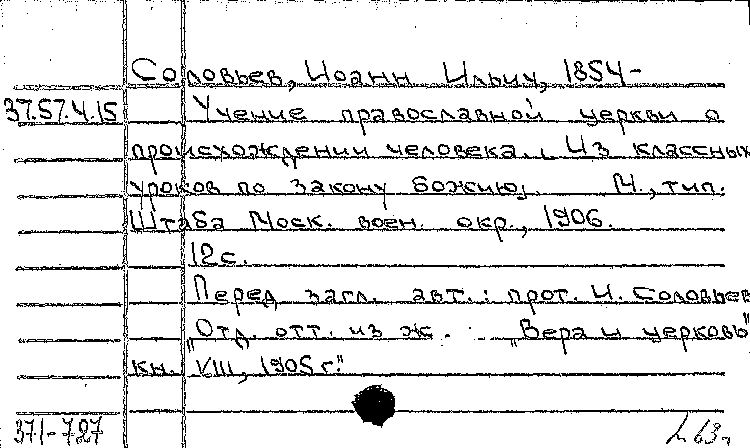 Соловьев, Иоанн Ильич, 1854-
37.57.4.15 Учение православной церкви о
происхождении человека. (Из классных
уроков по закону божию). М., тип.
Штаба Моск. воен. окр., 1906.
12 с.
Перед загл. авт.: прот. И. Соловьев
"Отд. отт. из ж. "Вера и церковь"
кн. VIII, 1905 г."
371-727